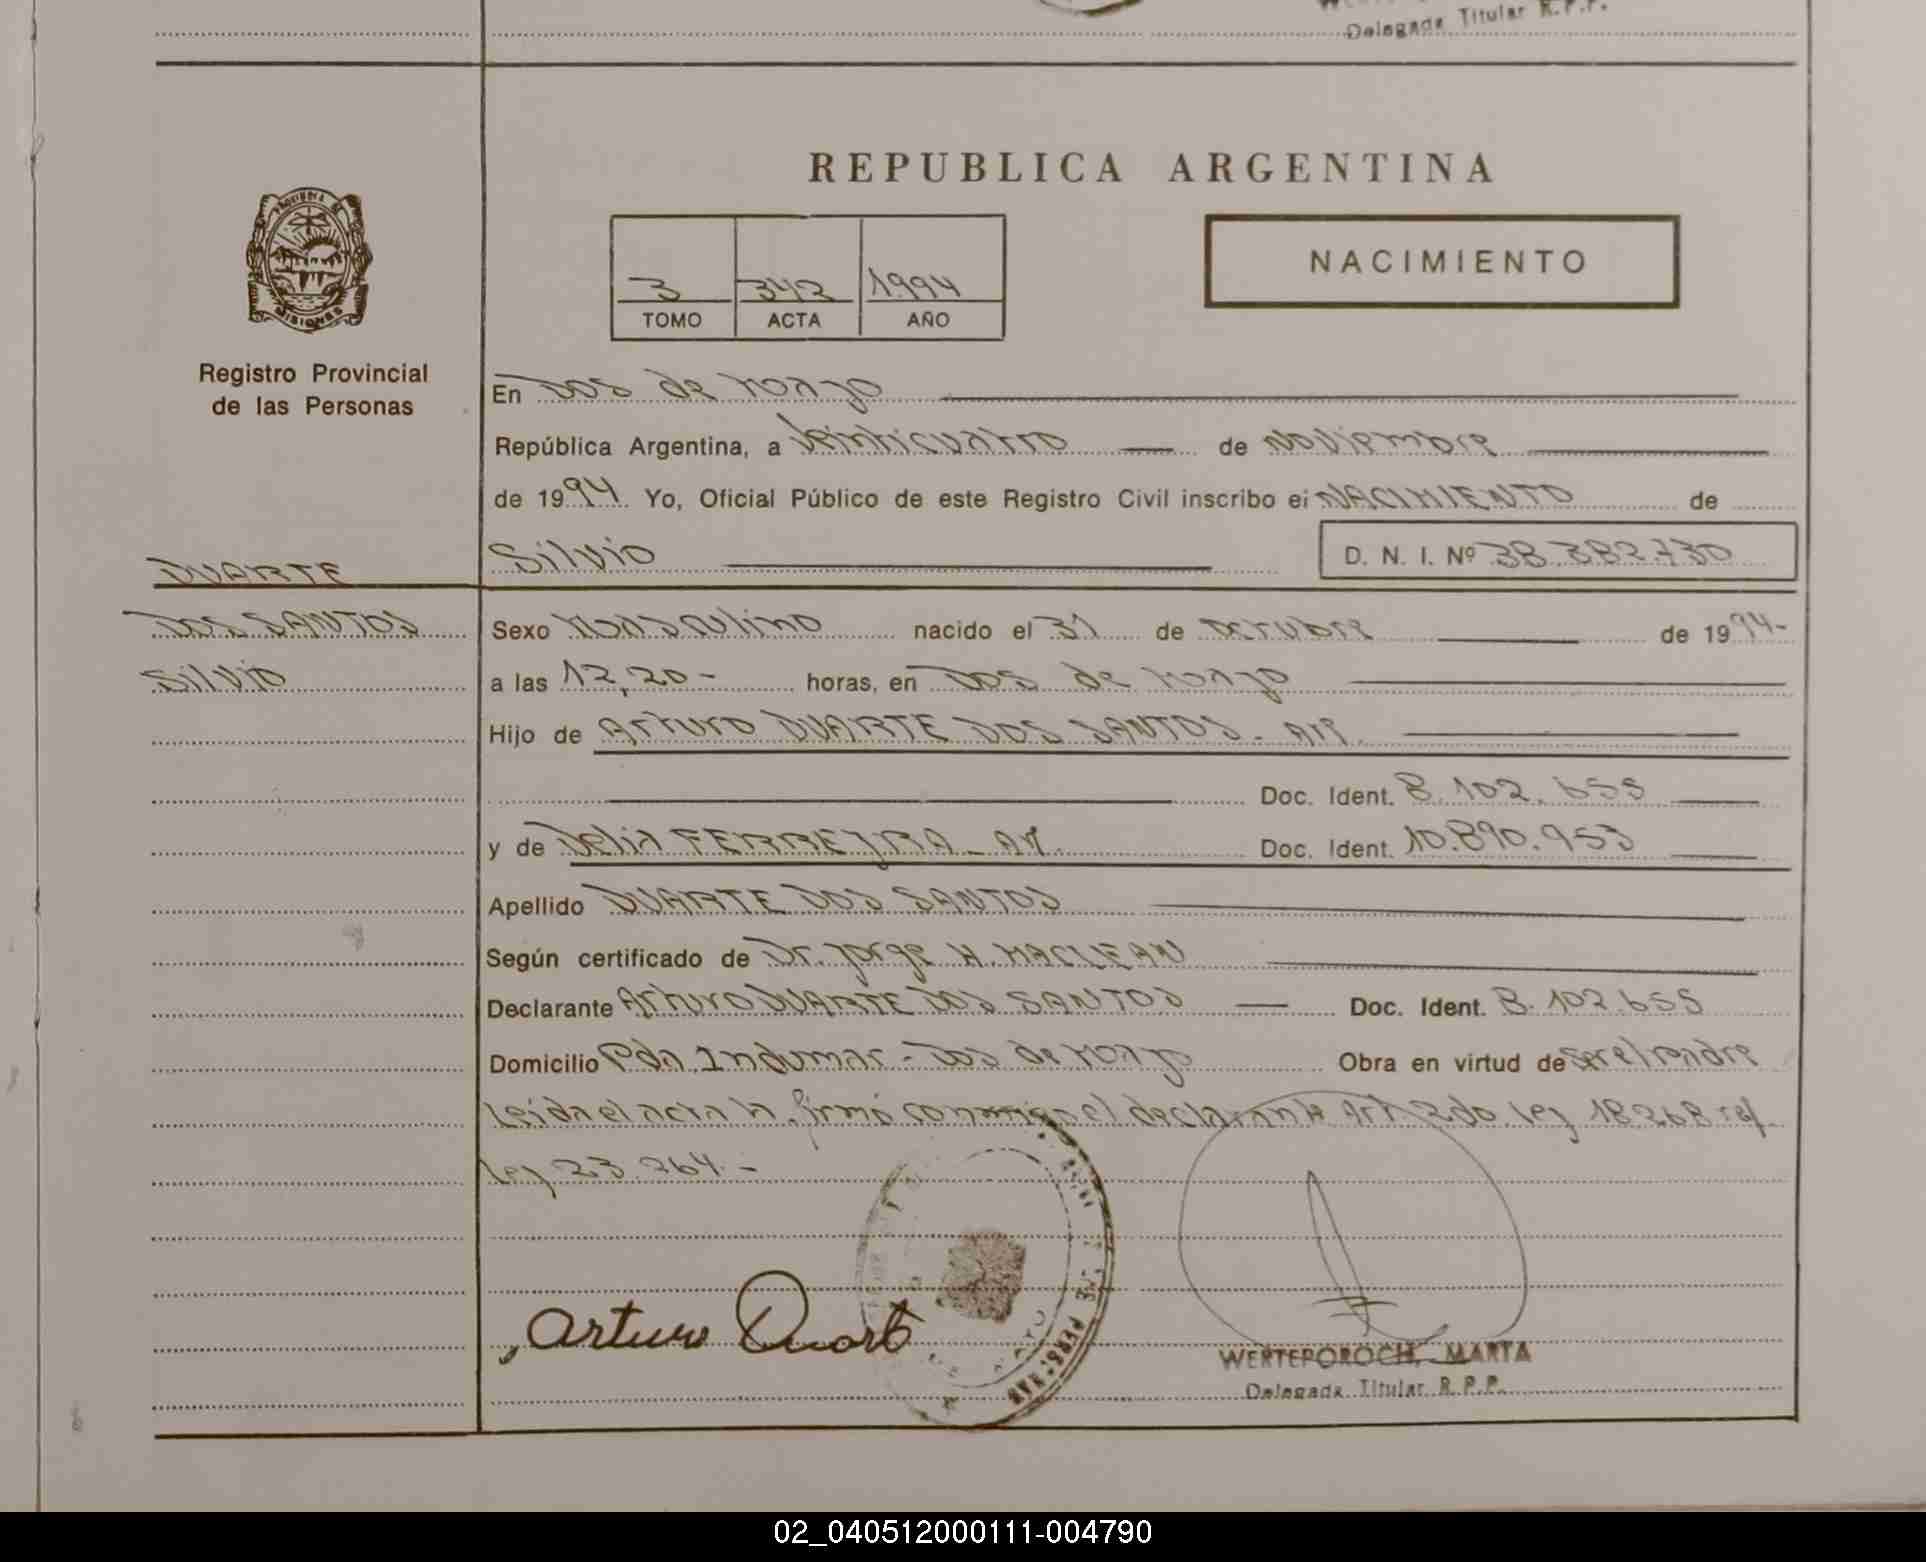 Delegada Titular R.P.P.
REPUBLICA ARGENTINA
PROVINCIA DE
MISIONES
Registro Provincial
de las Personas
3 342 1994
TOMO ACTA AÑO
NACIMIENTO
En Dos de Mayo
República Argentina, a Veinticuatro de Noviembre
de 1994. Yo, Oficial Público de este Registro Civil inscribo el NACIMIENTO de
Silvio D. N. I. Nº 38.382.730
DUARTE
DOS SANTOS
Silvio
Sexo Masculino nacido el 31 de octubre de 1994-
a las 12,20- horas, en Dos de Mayo
Hijo de Arturo DUARTE DOS SANTOS - Arg.
Doc. Ident. 8.102.655
y de Delia FERREYRA - Arg. Doc. Ident. 10.890.953
Apellido DUARTE DOS SANTOS
Según certificado de Dr. Jorge H. MACLEAN
Declarante Arturo DUARTE DOS SANTOS Doc. Ident. 8.102.655
Domicilio Pda. Indumar - Dos de Mayo Obra en virtud de ser el padre
Leida el acta la firmó conmigo el declarante Art. 2do. ley 18268 ref.
ley 23.264.-
Arturo Duarte
WERTEPOROCH, MARTA
Delegada Titular R.P.P.
02_040512000111-004790